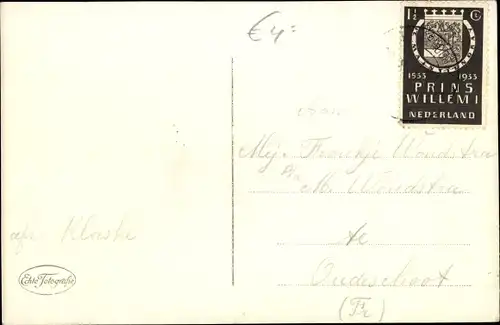 € 4=
1½ C
1533 1933
PRINS
WILLEM I
NEDERLAND
Aan
Mej. Froukje Woudstra
p/a M. Woudstra
te
Oudeschoot
(Fr)
afz.
Echte Fotografie